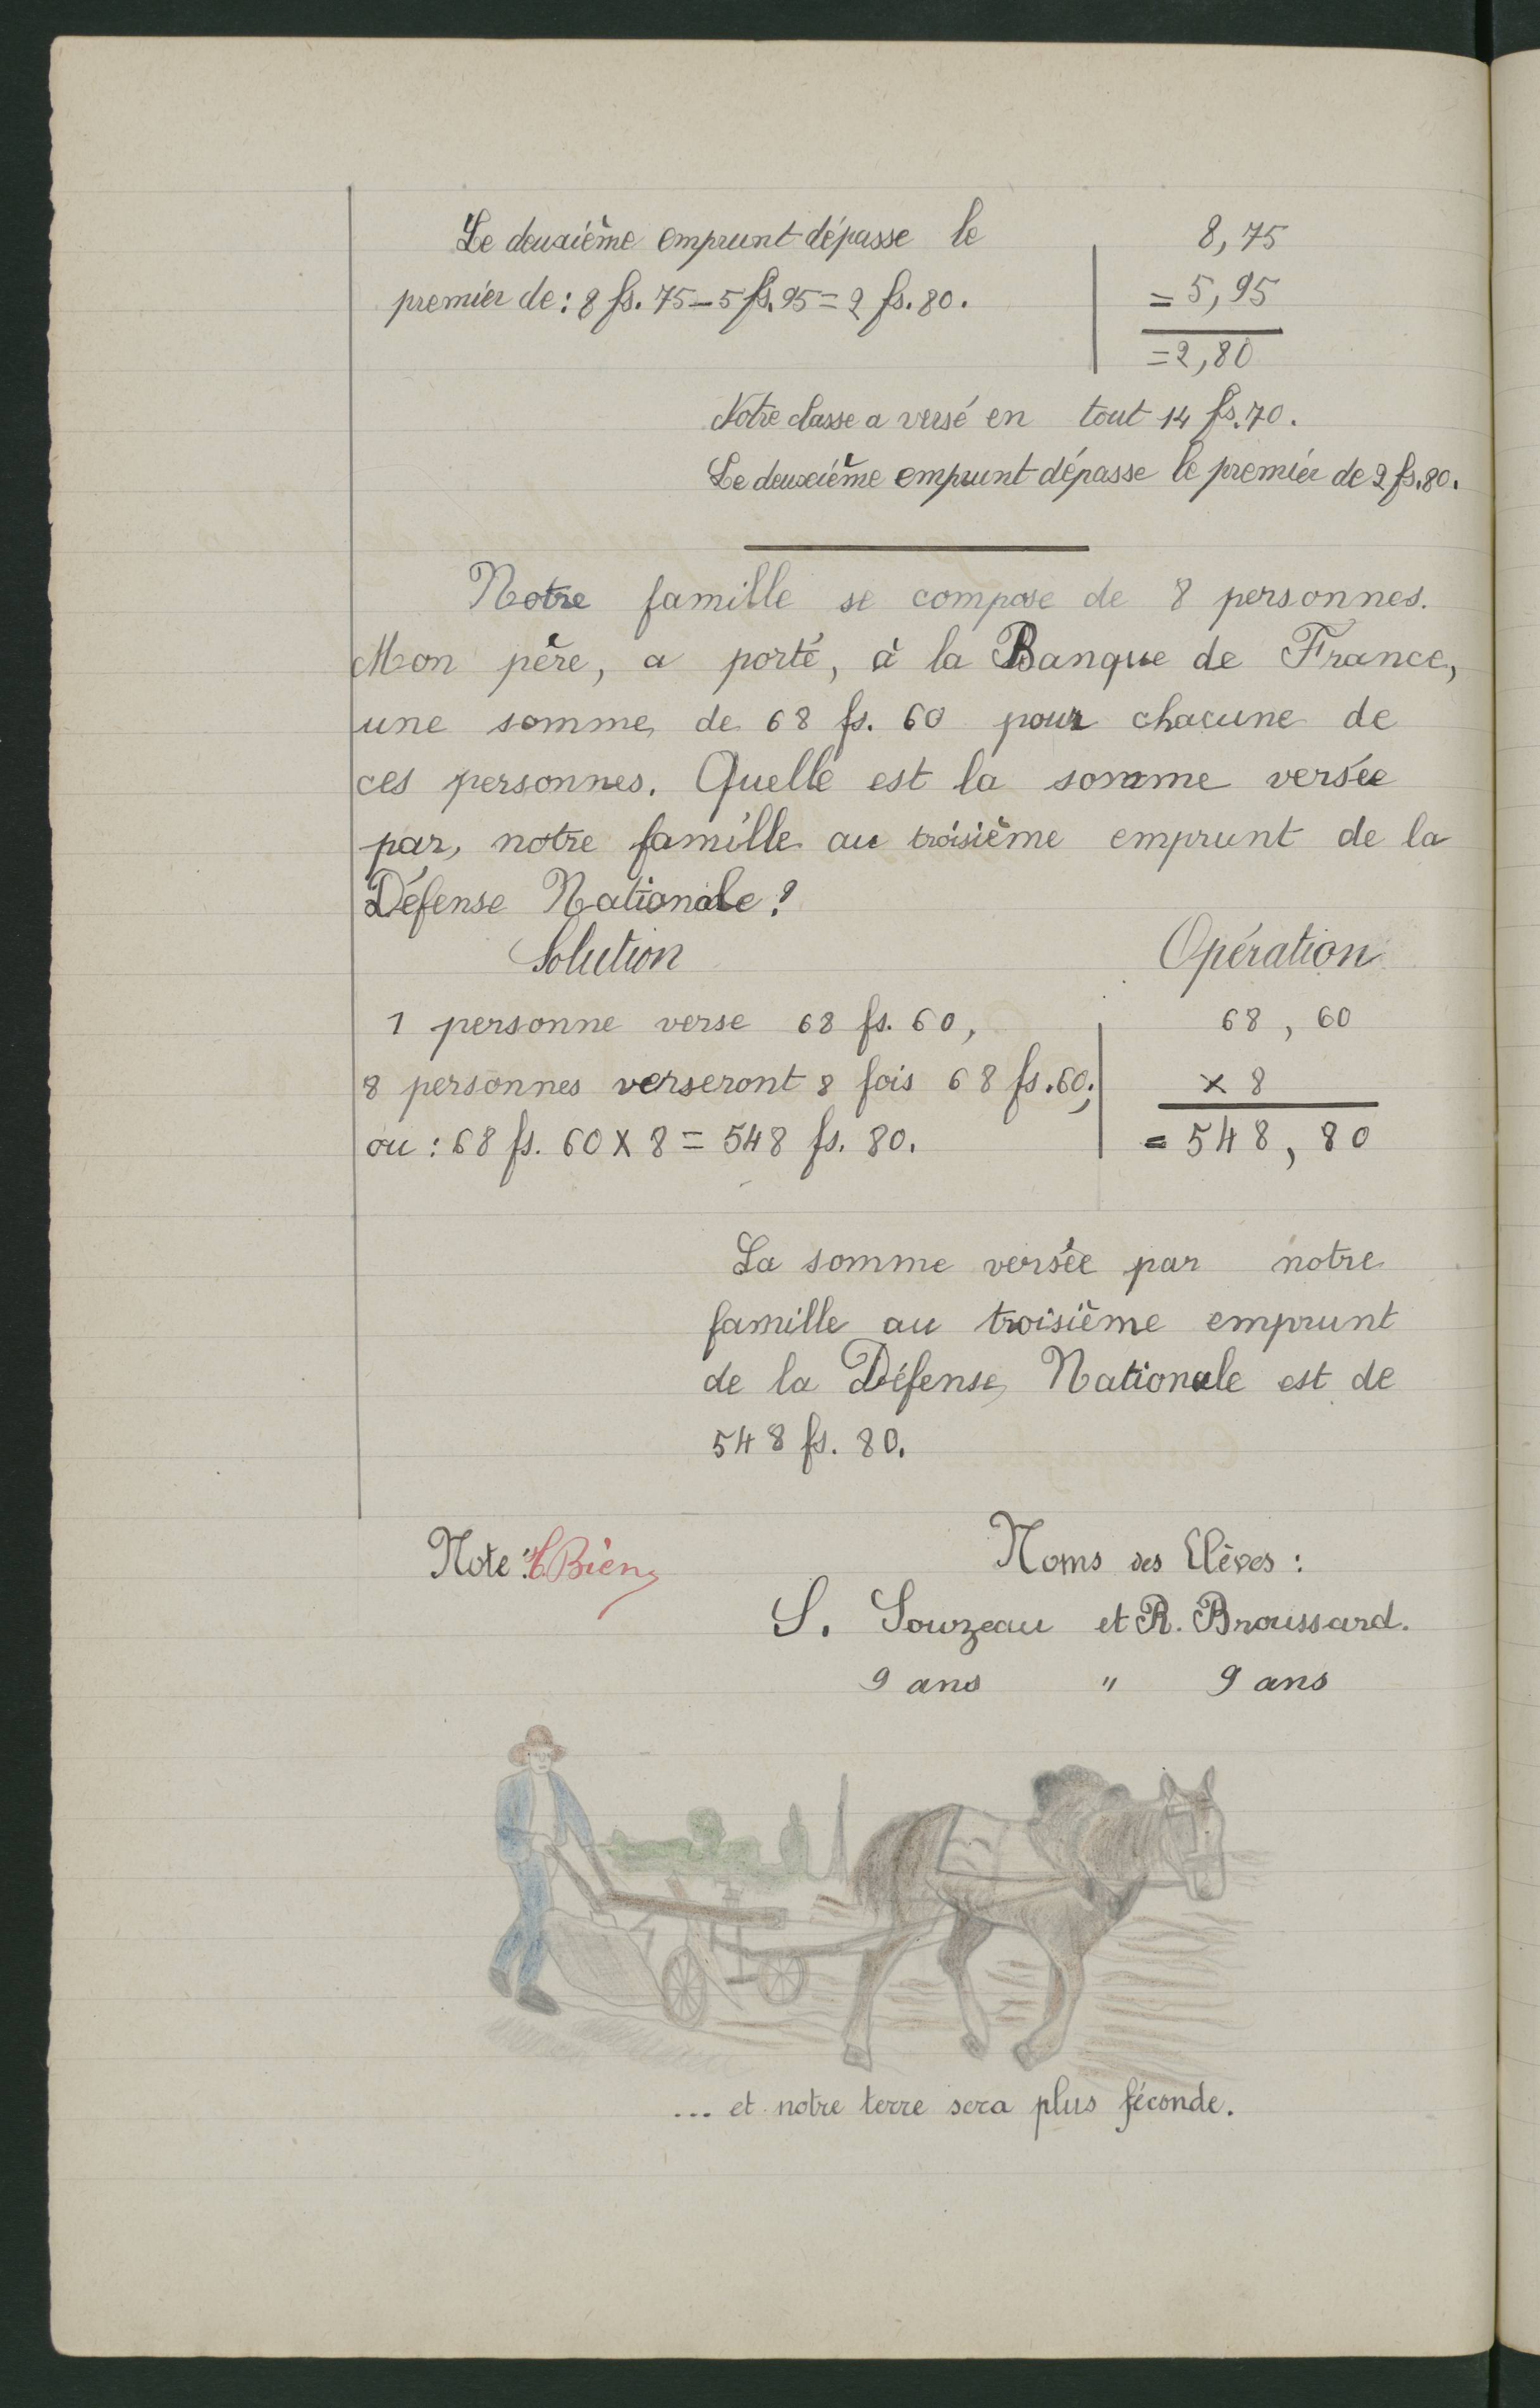 Le deuxième emprunt dépasse le
premier de : 8 fs. 75 - 5 fs. 95 = 2 fs. 80.
8,75
= 5,95
= 2,80
Notre classe a versé en tout 14 fs. 70.
Le deuxième emprunt dépasse le premier de 2 fs. 80.
Notre famille se compose de 8 personnes.
Mon père, a porté, à la Banque de France,
une somme, de 68 fs. 60 pour chacune de
ces personnes. Quelle est la somme versée
par, notre famille au troisième emprunt de la
Défense Nationale ?
Solution
1 personne verse 68 fs. 60,
8 personnes verseront 8 fois 68 fs. 60;
ou : 68 fs. 60 x 8 = 548 fs. 80.
Opération
68, 60
x 8
= 548, 80
La somme versée par notre
famille au troisième emprunt
de la Défense, Nationale est de
548 fs. 80.
Note : Bien
Noms des Elèves :
S. Souzeau et R. Broussard.
9 ans " 9 ans
... et notre terre sera plus féconde.